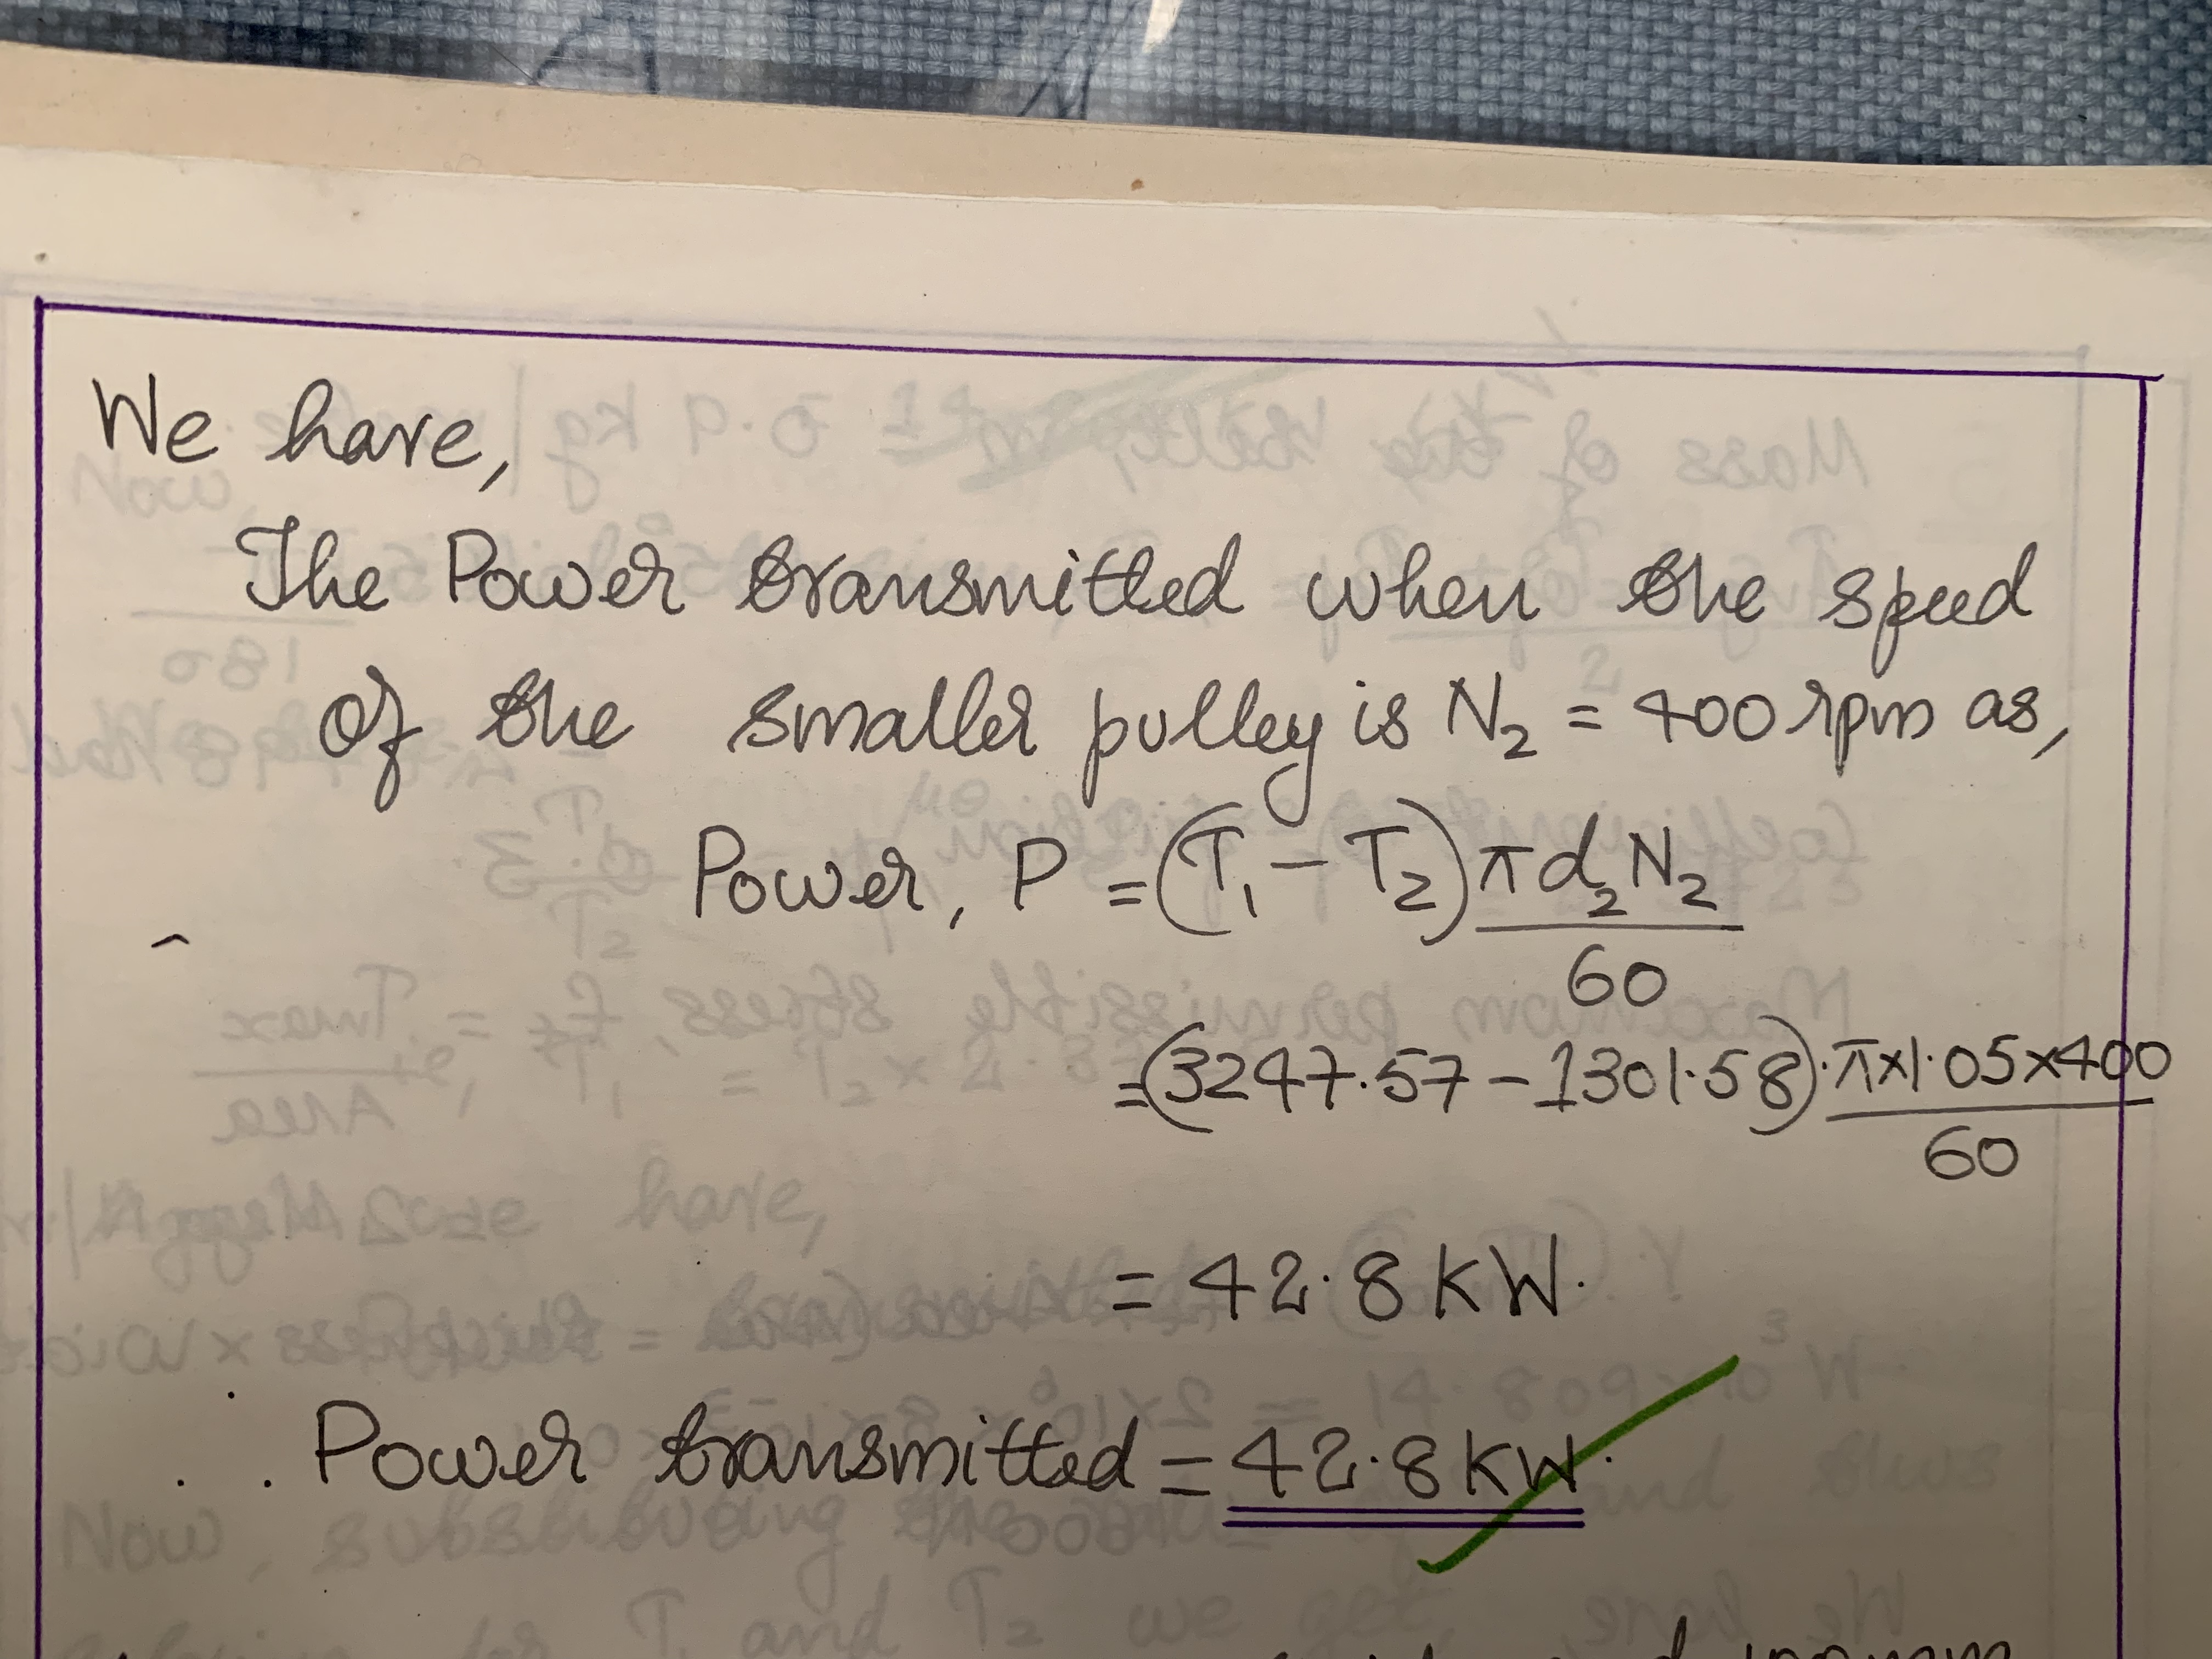 We have,
The Power transmitted when the speed
of the smaller pulley is N₂ = 400 rpm as,
Power, P = (T₁ - T₂) πd₂N₂/60
= (3247.57 - 1301.58) . π×1.05×400/60
= 42.8 kW.
∴ Power transmitted = 42.8 kW.